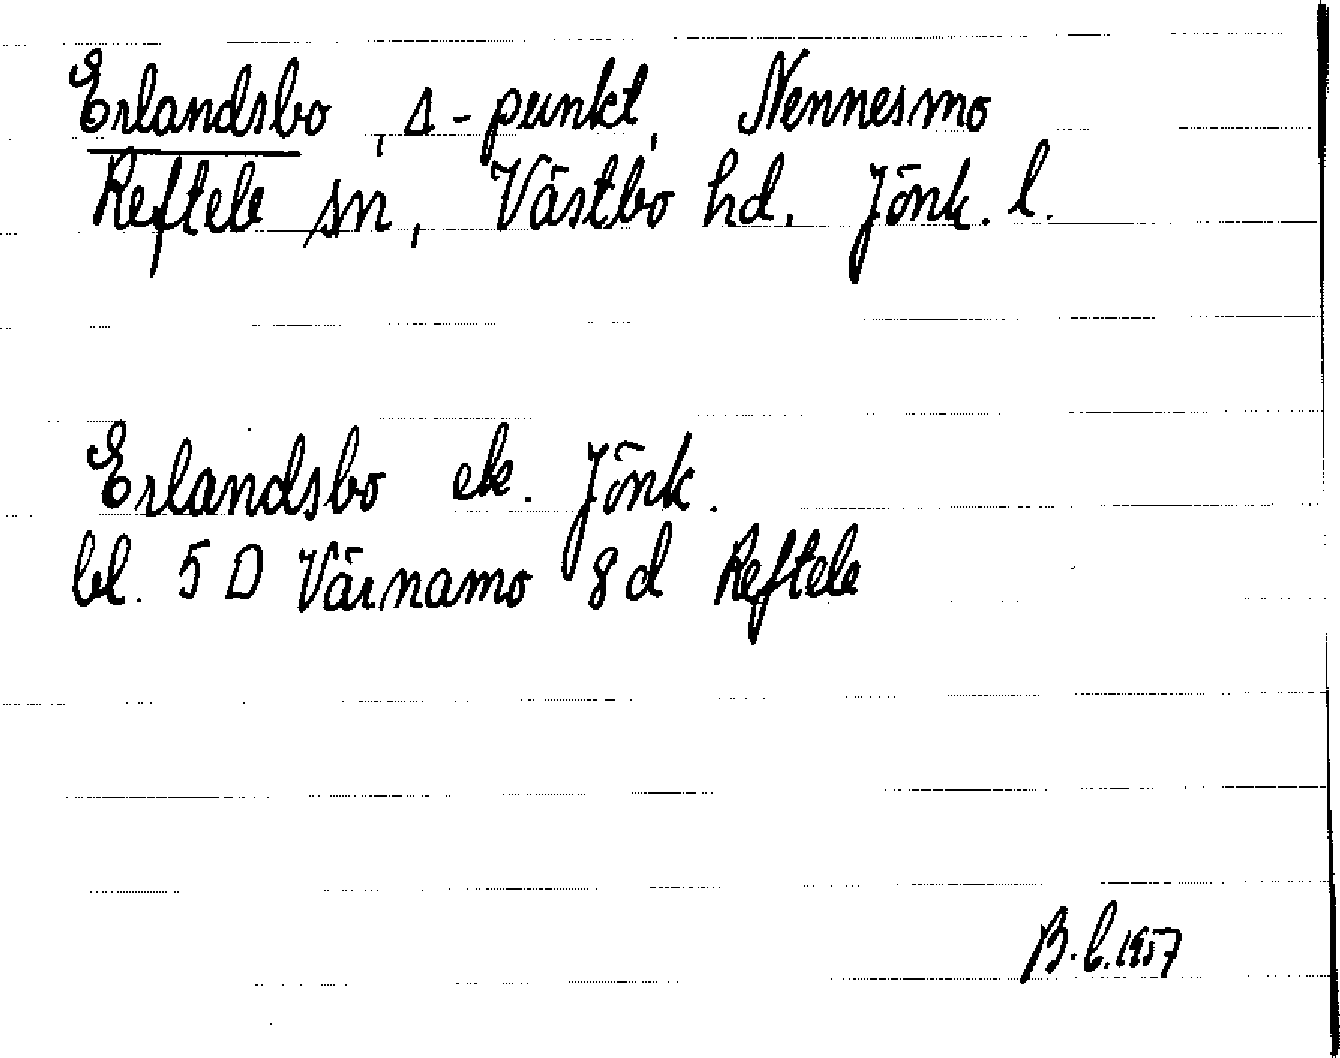 Erlandsbo, Δ-punkt, Nennesmo
Reftele sn, Västbo hd. Jönk. l.
Erlandsbo ek. Jönk.
bl. 5 D Värnamo 8d Reftele
B.b.1957